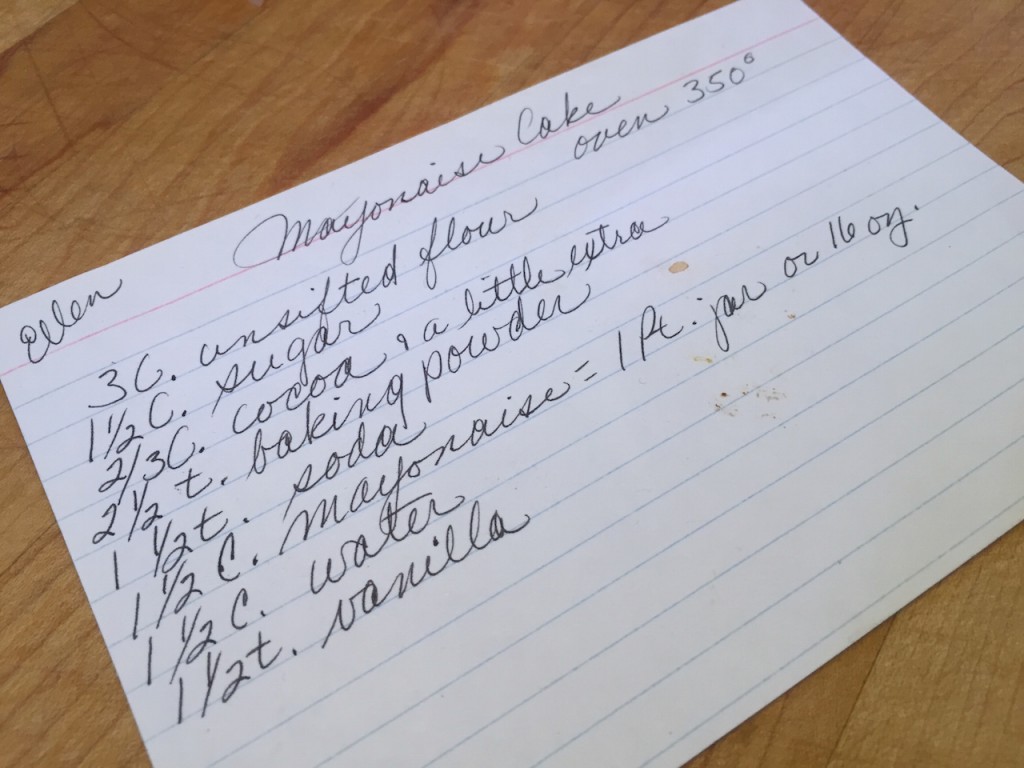 Mayonaise Cake
oven 350°
Ellen
3 C. unsifted flour
1 1/2 C. sugar
2/3 C. cocoa & a little extra
2 1/2 t. baking powder
1 1/2 t. soda
1 1/2 C. mayonaise = 1 Pt. jar or 16 oz.
1 1/2 C. water
1 1/2 t. vanilla